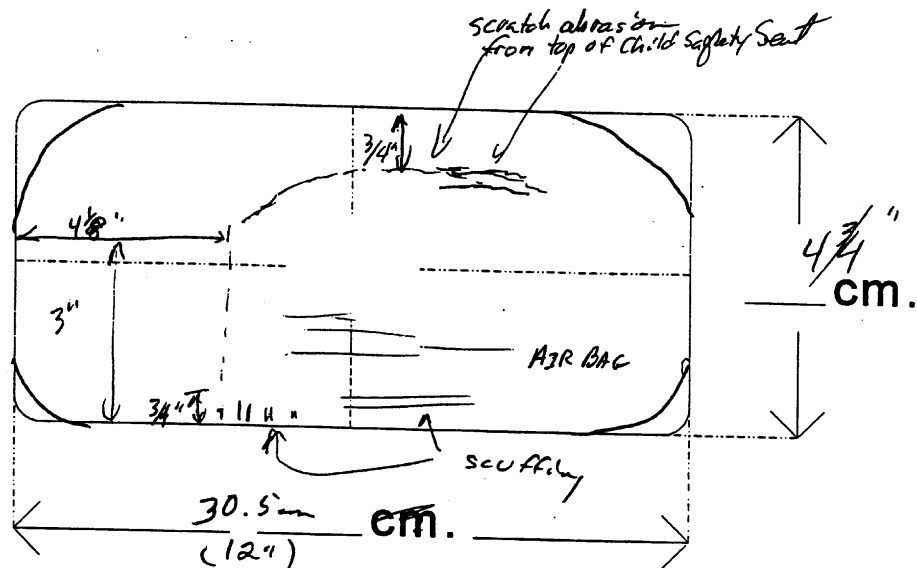 scratch abrasion
from top of Child Safety Seat
3/4"
4 1/8"
4 3/4"
cm.
3"
AIR BAG
3/4"
scuffing
30.5 cm cm.
(12")